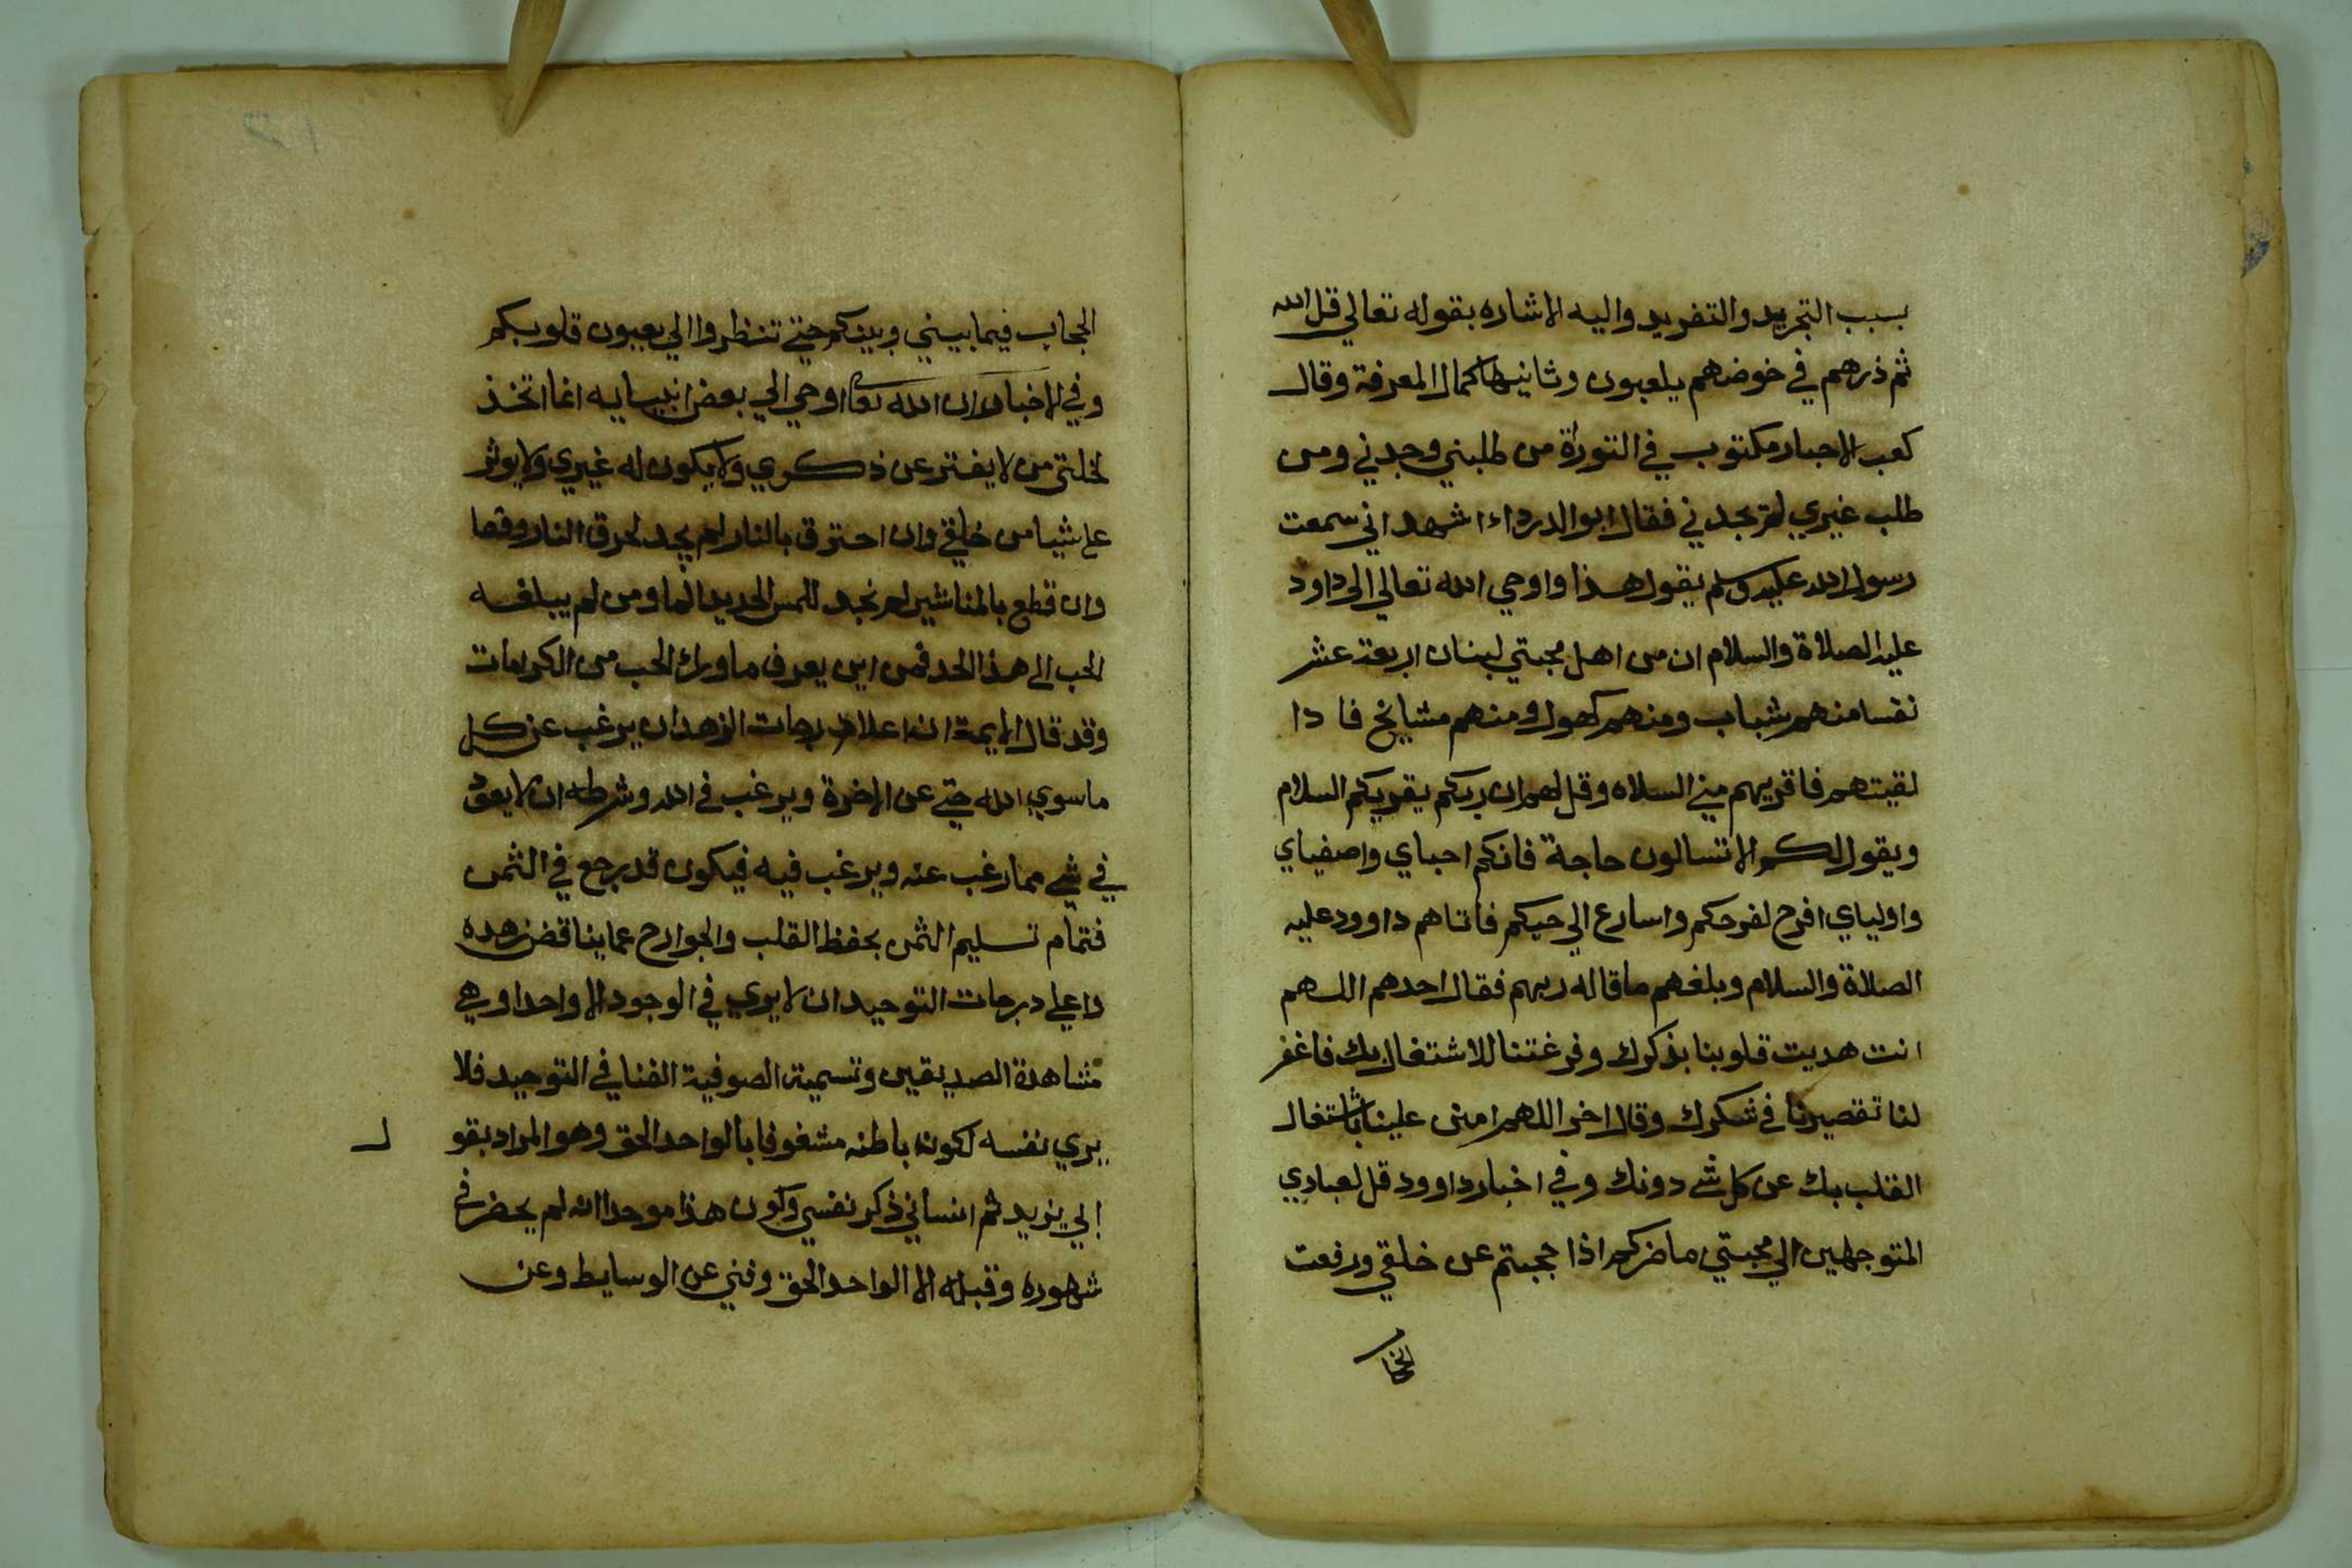 بسبب التجريد والتفريد واليه الاشاره بقوله تعالي قل الله
ثم ذرهم في خوضهم يلعبون وثانيها كمال المعرفة وقال
كعب الاحبار مكتوب في التوراة من طلبني وجدني ومن
طلب غيري لم يجدني فقال ابو الدرداء اشهد اني سمعت
رسول الله عليه وسلم يقول هذا واوحي الله تعالي الى داود
عليه الصلاة والسلام ان من اهل محبتي لبنان اربعة عشر
نفسا منهم شباب ومنهم كهول ومنهم مشايخ فا دا
لقيتهم فاقريهم مني السلاه وقل لهم ان ربكم يقريكم السلام
ويقول لكم الا تسالون حاجة فانكم احباي واصفياي
واولياي افرح لفرحكم واسارع الي حبكم فاتاهم داوود عليه
الصلاة والسلام وبلغهم ما قاله ربهم فقال احدهم اللهم
انت هديت قلوبنا بذكرك وفرغتنا للاشتغال بك فاغفر
لنا تقصيرنا في شكرك وقال اخر اللهم امنن علينا باشتغال
القلب بك عن كل شي دونك وفي اخبار داوود قل لعبادي
المتوجهين الي محبتي ما ضركم اذا حجبتم عن خلقي ورفعت
الحجاب فيما بيني وبينكم حتي تنظروا الي بعيون قلوبكم
وفي الاخبار ان الله تعا اوحي الي بعض انبيايه انما اتخذ
لخلتي من لا يفتر عن ذكري ولا يكون له غيري ولا يوثر
على شيا من خلقي وان احترق بالنار لم يجد لحرق النار وقعا
وان قطع بالمناشير لم يجد للمس الحديد الما ومن لم يبلغه
الحب الى هذا الحد فمن اين يعرف ما وراء الحب من الكرامات
وقد قال الايمة ان اعلا درجات الزهد ان يرغب عن كل
ما سوي الله حتي عن الاخرة ويرغب في الله وشرطه ان لا يعود
في شي مما رغب عنه ويرغب فيه فيكون قد رجع في الثمن
فتمام تسليم الثمن بحفظ القلب والجوارح عما يناقض زهده
واعلي درجات التوحيد ان لا يري في الوجود الا واحدا وهي
مشاهدة الصديقين وتسمية الصوفية الفنا في التوحيد فلا
يري نفسه لكون باطنه مشغوفا بالواحد الحق وهو المراد بقو ل
ابي يزيد ثم انساني ذكر نفسي وكون هذا موحدا انه لم يحضر في
شهوده وقبله الا الواحد الحق وفني عن الوسايط وعن